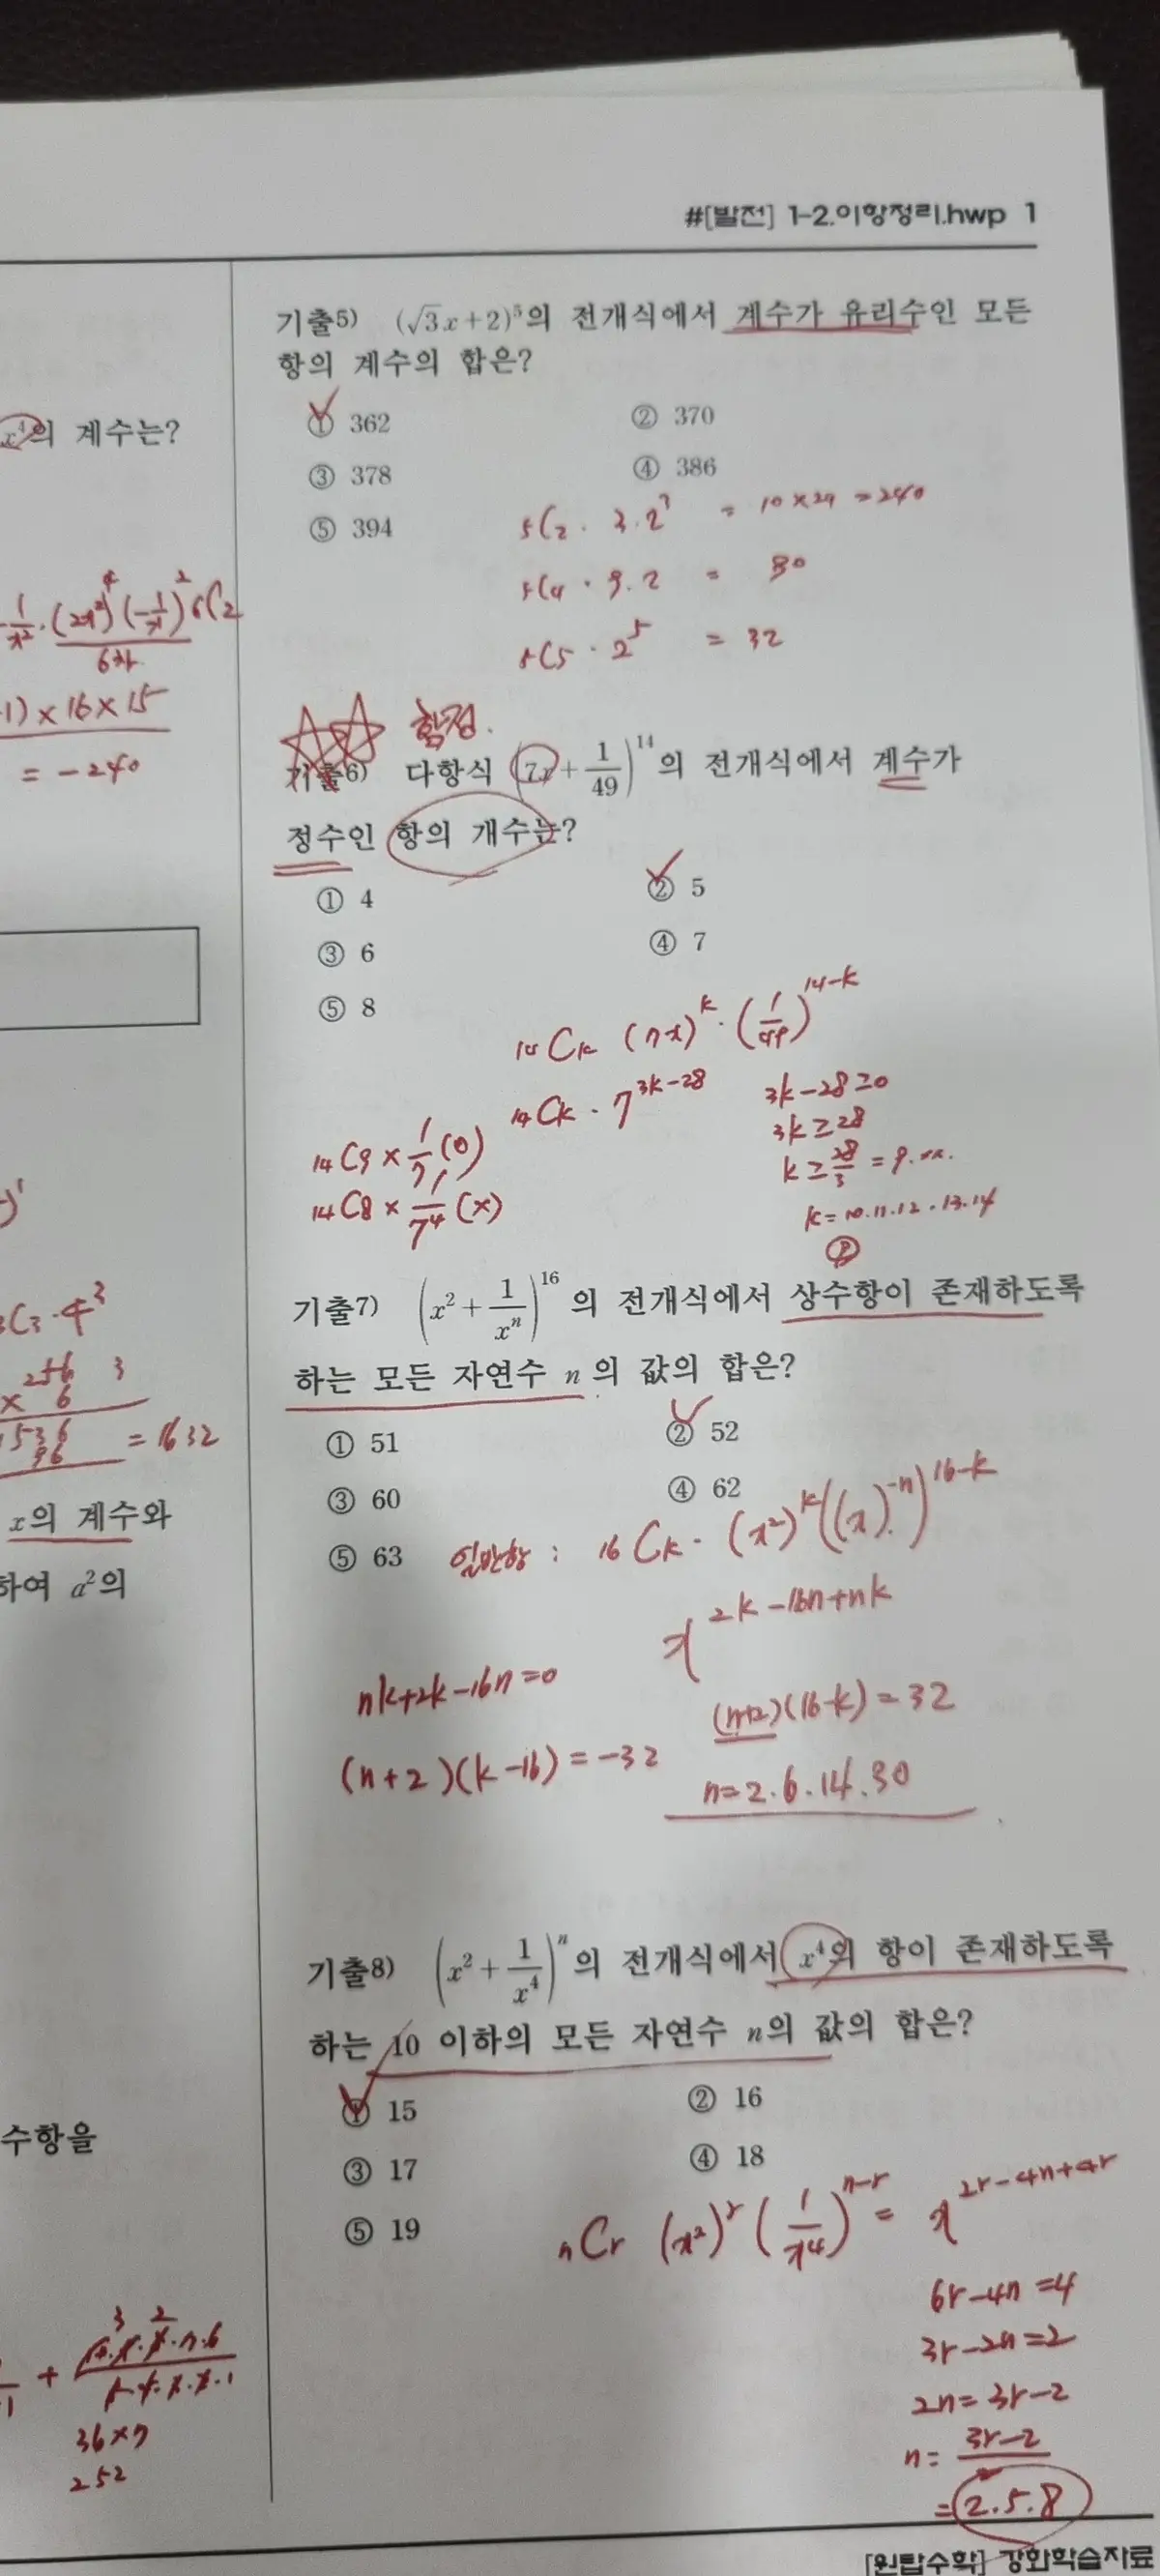 #[발전] 1-2.이항정리.hwp 1
x⁴의 계수는?
-1/x² · (2x²)⁴(-1/x)² 6C2
-1) × 16 × 15
= -240
3C3 · 4³
256 3
× 6
1536
96 = 1632
x의 계수와
하여 a²의
수항을
36×7
252
기출5) (√3x+2)⁵의 전개식에서 계수가 유리수인 모든
항의 계수의 합은?
① 362 ② 370
③ 378 ④ 386
⑤ 394
5C2 · 3 · 2³ = 10×24 = 240
5C4 · 9 · 2 = 90
5C5 · 2⁵ = 32
함정.
기출6) 다항식 (7x + 1/49)¹⁴의 전개식에서 계수가
정수인 항의 개수는?
① 4 ② 5
③ 6 ④ 7
⑤ 8
14Ck (7x)^k · (1/49)^(14-k)
14Ck · 7^(3k-28)
3k-28≥0
3k≥28
k≥28/3 = 9.××.
k=10.11.12.13.14
14C9 × 1/7 (0)
14C8 × 1/7⁴ (x)
기출7) (x² + 1/xⁿ)¹⁶의 전개식에서 상수항이 존재하도록
하는 모든 자연수 n의 값의 합은?
① 51 ② 52
③ 60 ④ 62
⑤ 63
일반항 : 16Ck · (x²)^k ((x)^-n)^(16-k)
x^(2k-16n+nk)
nk+2k-16n=0
(n+2)(16-k)=32
(n+2)(k-16)=-32
n=2.6.14.30
기출8) (x² + 1/x⁴)ⁿ의 전개식에서 x⁴의 항이 존재하도록
하는 10 이하의 모든 자연수 n의 값의 합은?
① 15 ② 16
③ 17 ④ 18
⑤ 19
nCr (x²)^r (1/x⁴)^(n-r) = x^(2r-4n+4r)
6r-4n=4
3r-2n=2
2n=3r-2
n= (3r-2)/2
= 2.5.8
[원탑수학] 강화학습자료